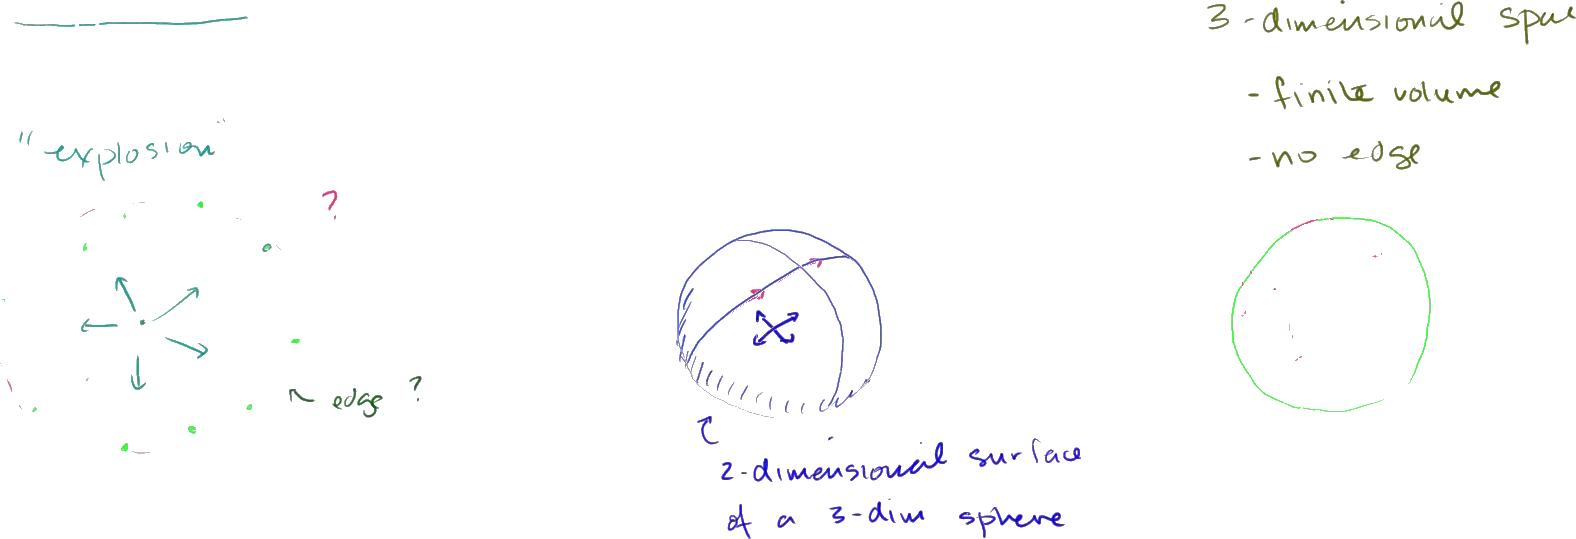 "explosion"
?
edge ?
2-dimensional surface
of a 3-dim sphere
3-dimensional
- finite volume
- no edge